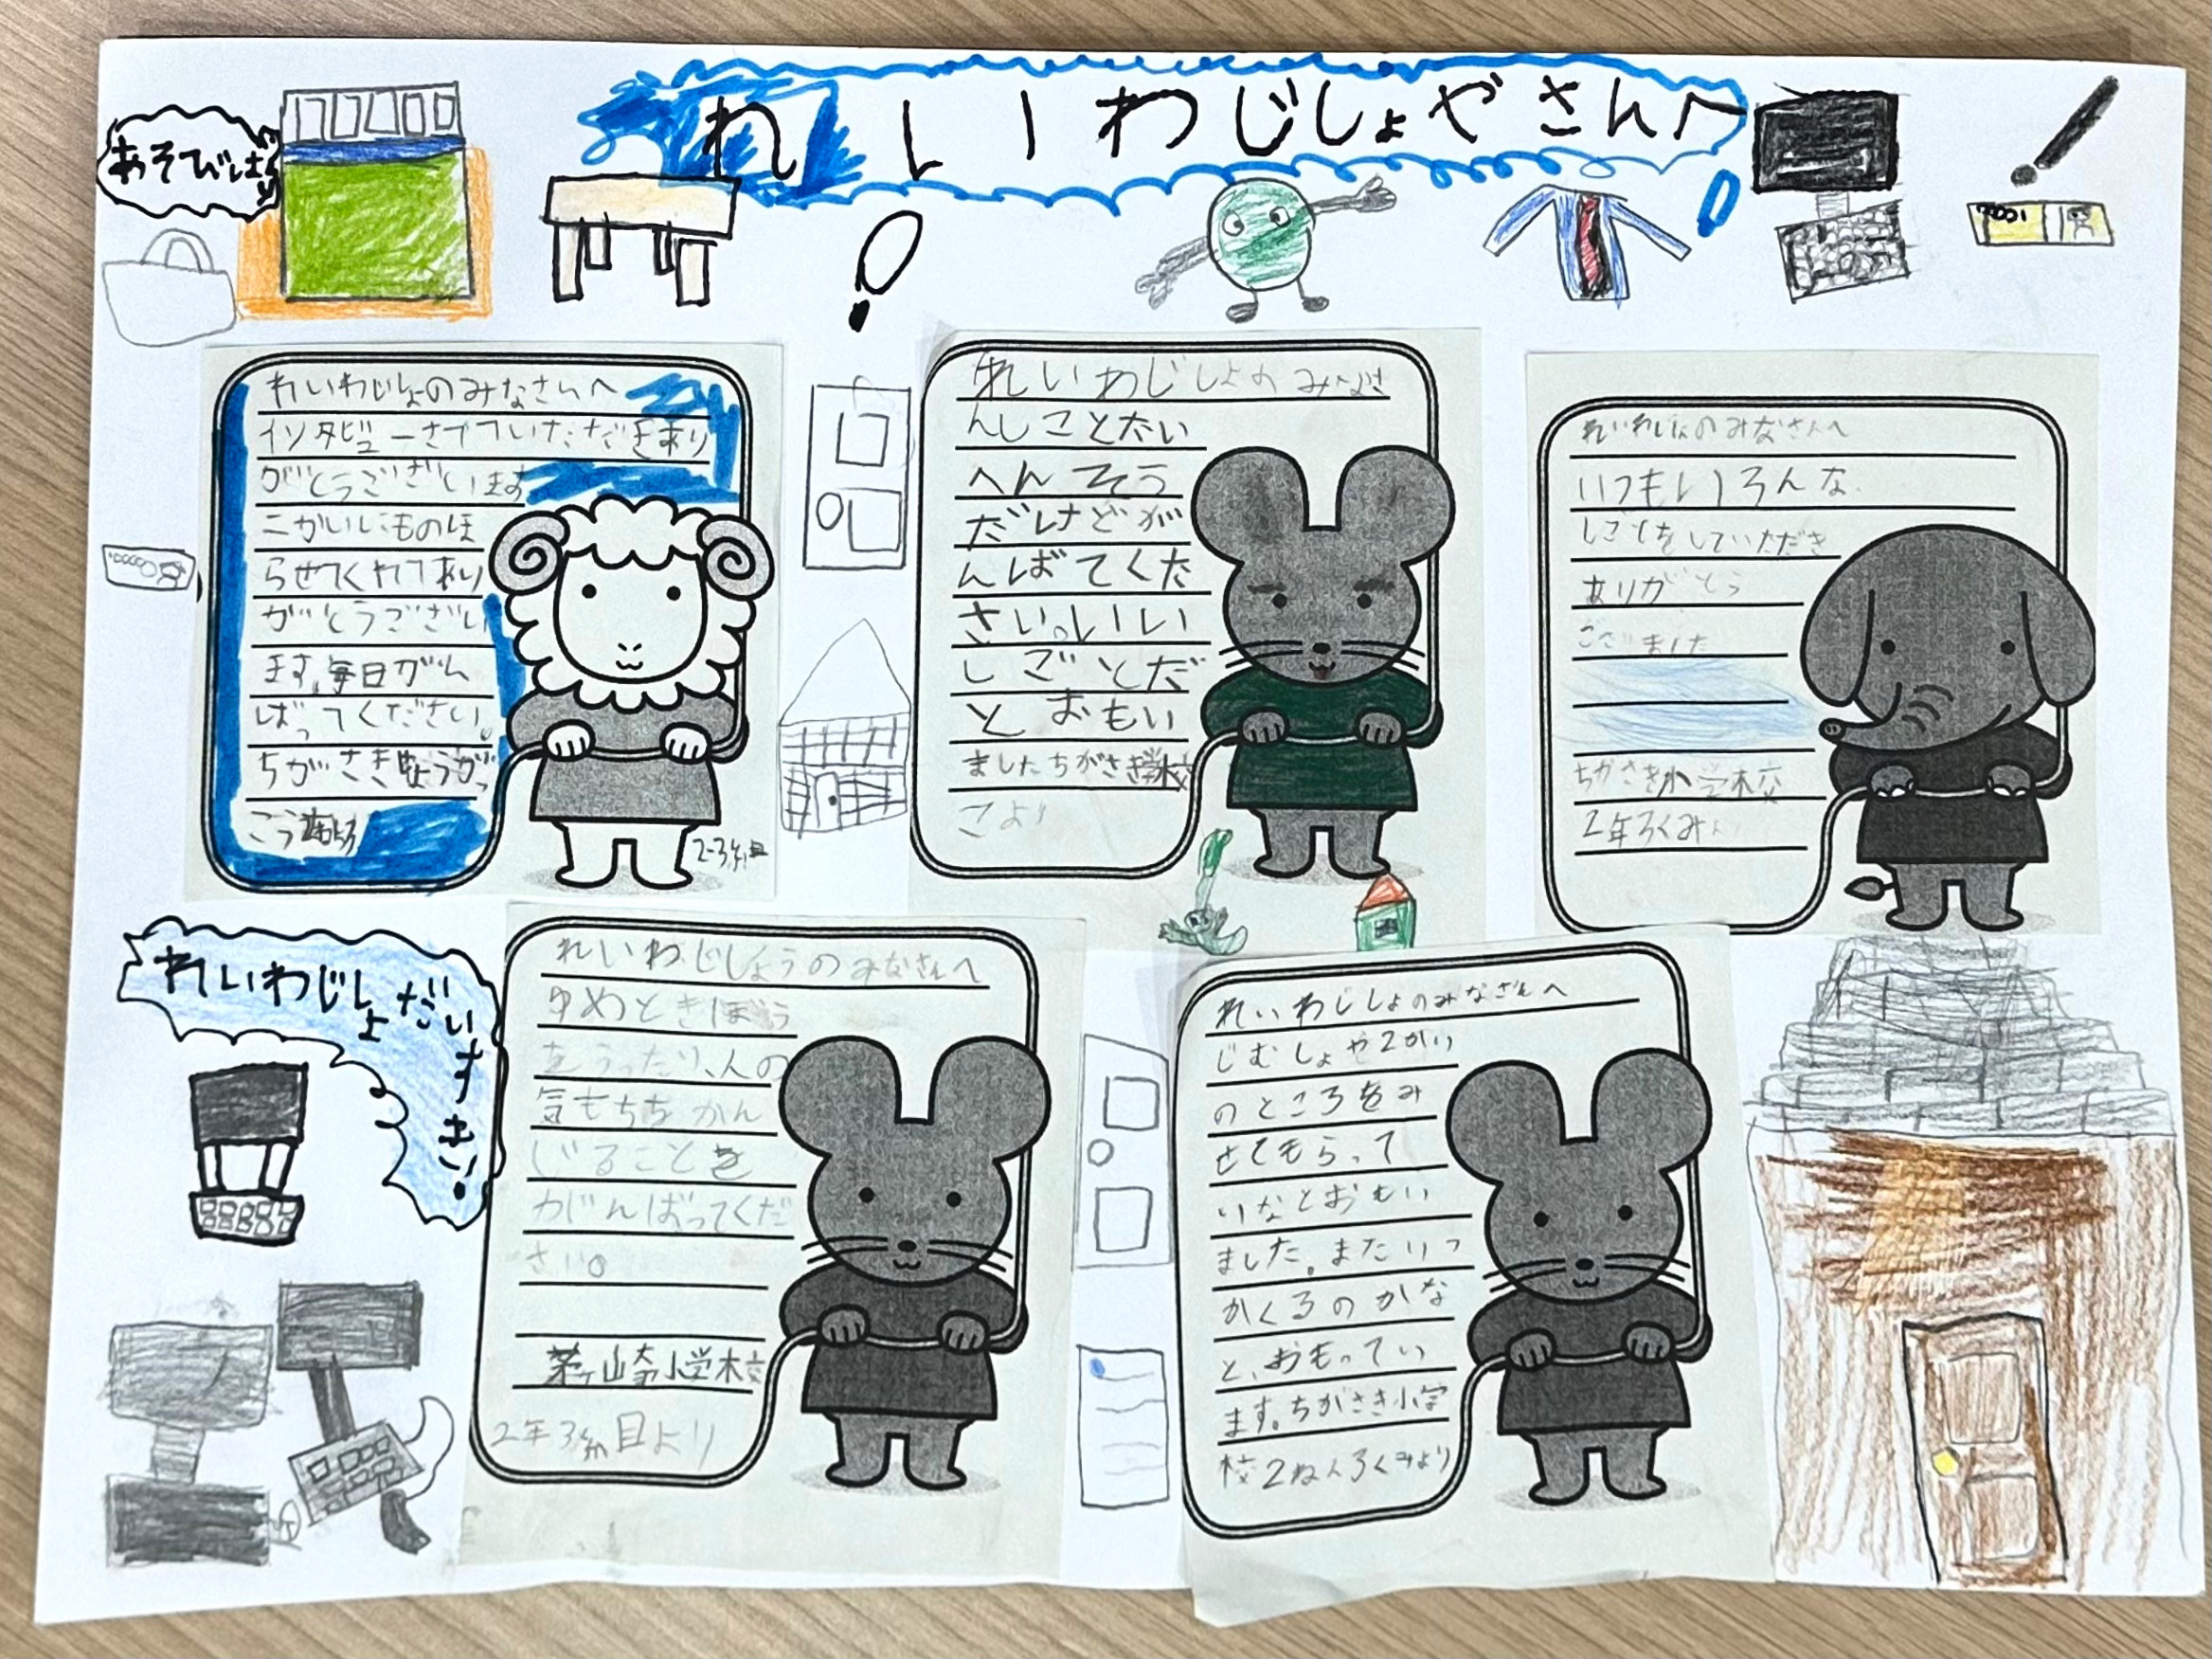 れいわじしょやさんへ
あそびば
れいわじしょのみなさんへ
インタビューさせていただきあり
がとうございます
二かいにものぼ
らせてくれてあり
がとうござい
ます。毎日がん
ばってください。
ちがさきしょうがっ
こう
2-3組
れいわじしょのみなさ
んしごとたい
へんそう
だけどが
んばてくだ
さい。いい
しごとだ
とおもい
ましたちがさき学校
こより
れいわじしょのみなさんへ
いつもいろんな
しごとをしていただき
ありがとう
ございました
ちがさき小学校
2年3くみ
れいわじしょだいすき!
れいわじしょうのみなさんへ
ゆめときぼう
をうったり、人の
気もちをかん
じることを
がんばってくだ
さい。
茅ヶ崎小学校
2年3組より
れいわじしょのみなさんへ
じむしょや2かい
のところをみ
せてもらって
いなとおもい
ました。またいつ
かくるのかな
と、おもってい
ます。ちがさき小学
校2ねん3くみより